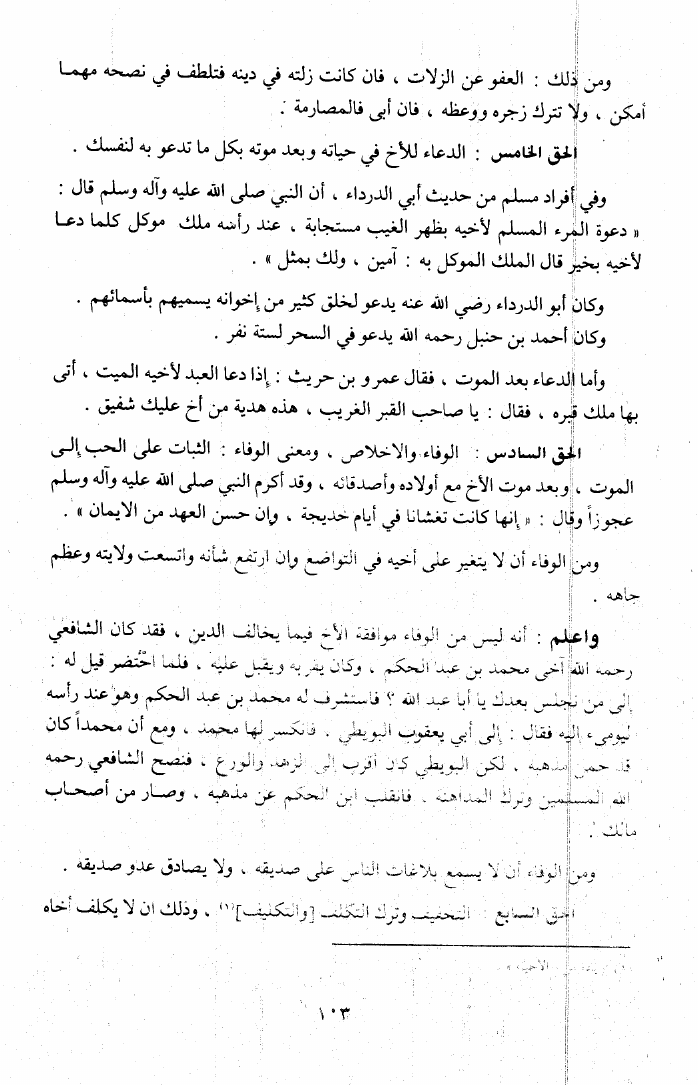 ومن ذلك : العفو عن الزلات ، فان كانت زلته في دينه فتلطف في نصحه مهمـا
أمكن ، ولا تترك زجره ووعظه ، فان أبى فالمصارمة .
الحق الخامس : الدعاء للأخ في حياته وبعد موته بكل ما تدعو به لنفسك .
وفي أفراد مسلم من حديث أبي الدرداء ، أن النبي صلى الله عليه وآله وسلم قال :
« دعوة المرء المسلم لأخيه بظهر الغيب مستجابة ، عند رأسه ملك موكل كلما دعـا
لأخيه بخير قال الملك الموكل به : آمين ، ولك بمثل » .
وكان أبو الدرداء رضي الله عنه يدعو لخلق كثير من إخوانه يسميهم بأسمائهم .
وكان أحمد بن حنبل رحمه الله يدعو في السحر لستة نفر .
وأما الدعاء بعد الموت ، فقال عمرو بن حريث : إذا دعا العبد لأخيه الميت ، أتى
بها ملك قبره ، فقال : يا صاحب القبر الغريب ، هذه هدية من أخ عليك شفيق .
الحق السادس : الوفاء والاخلاص ، ومعنى الوفاء : الثبات على الحب إلـى
الموت ، وبعد موت الأخ مع أولاده وأصدقائه ، وقد أكرم النبي صلى الله عليه وآله وسلم
عجوزاً وقال : « إنها كانت تغشانا في أيام خديجة ، وإن حسن العهد من الايمان » .
ومن الوفاء أن لا يتغير على أخيه في التواضع وإن ارتفع شأنه واتسعت ولايته وعظم
جاهه .
واعلم : أنه ليس من الوفاء موافقة الأخ فيما يخالف الدين ، فقد كان الشافعي
رحمه الله آخى محمد بن عبد الحكم ، وكان يقربه ويقبل عليه ، فلما احْتضر قيل له :
إلى من نجلس بعدك يا أبا عبد الله ؟ فاستشرف له محمد بن عبد الحكم وهو عند رأسه
ليومىء إليه فقال : إلى أبي يعقوب البويطي . فانكسر لها محمد ، ومع أن محمداً كان
قد حمل مذهبه ، لكن البويطي كان أقرب إلى الزهد والورع ، فنصح الشافعي رحمه
الله المسلمين وترك المداهنة . فانقلب ابن الحكم عن مذهبه ، وصـار من أصحـاب
مالك .
ومن الوفاء أن لا يسمع بلاغات الناس على صديقه ، ولا يصادق عدو صديقه .
الحق السابع : التخفيف وترك التكلف [والتكليف](١) ، وذلك ان لا يكلف أخاه
١٠٣